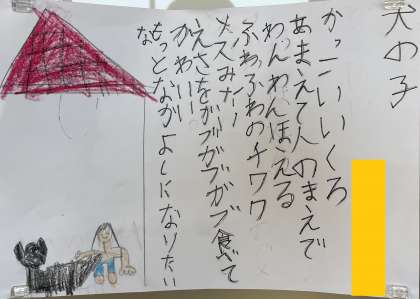 犬の子
かっこいいくろ
あまえて人のまえで
わんわんほえる
ふわふわのチワワ
メスみたい
えさをガブガブガブ食べて
かわいい
もっとなかよしになりたいな